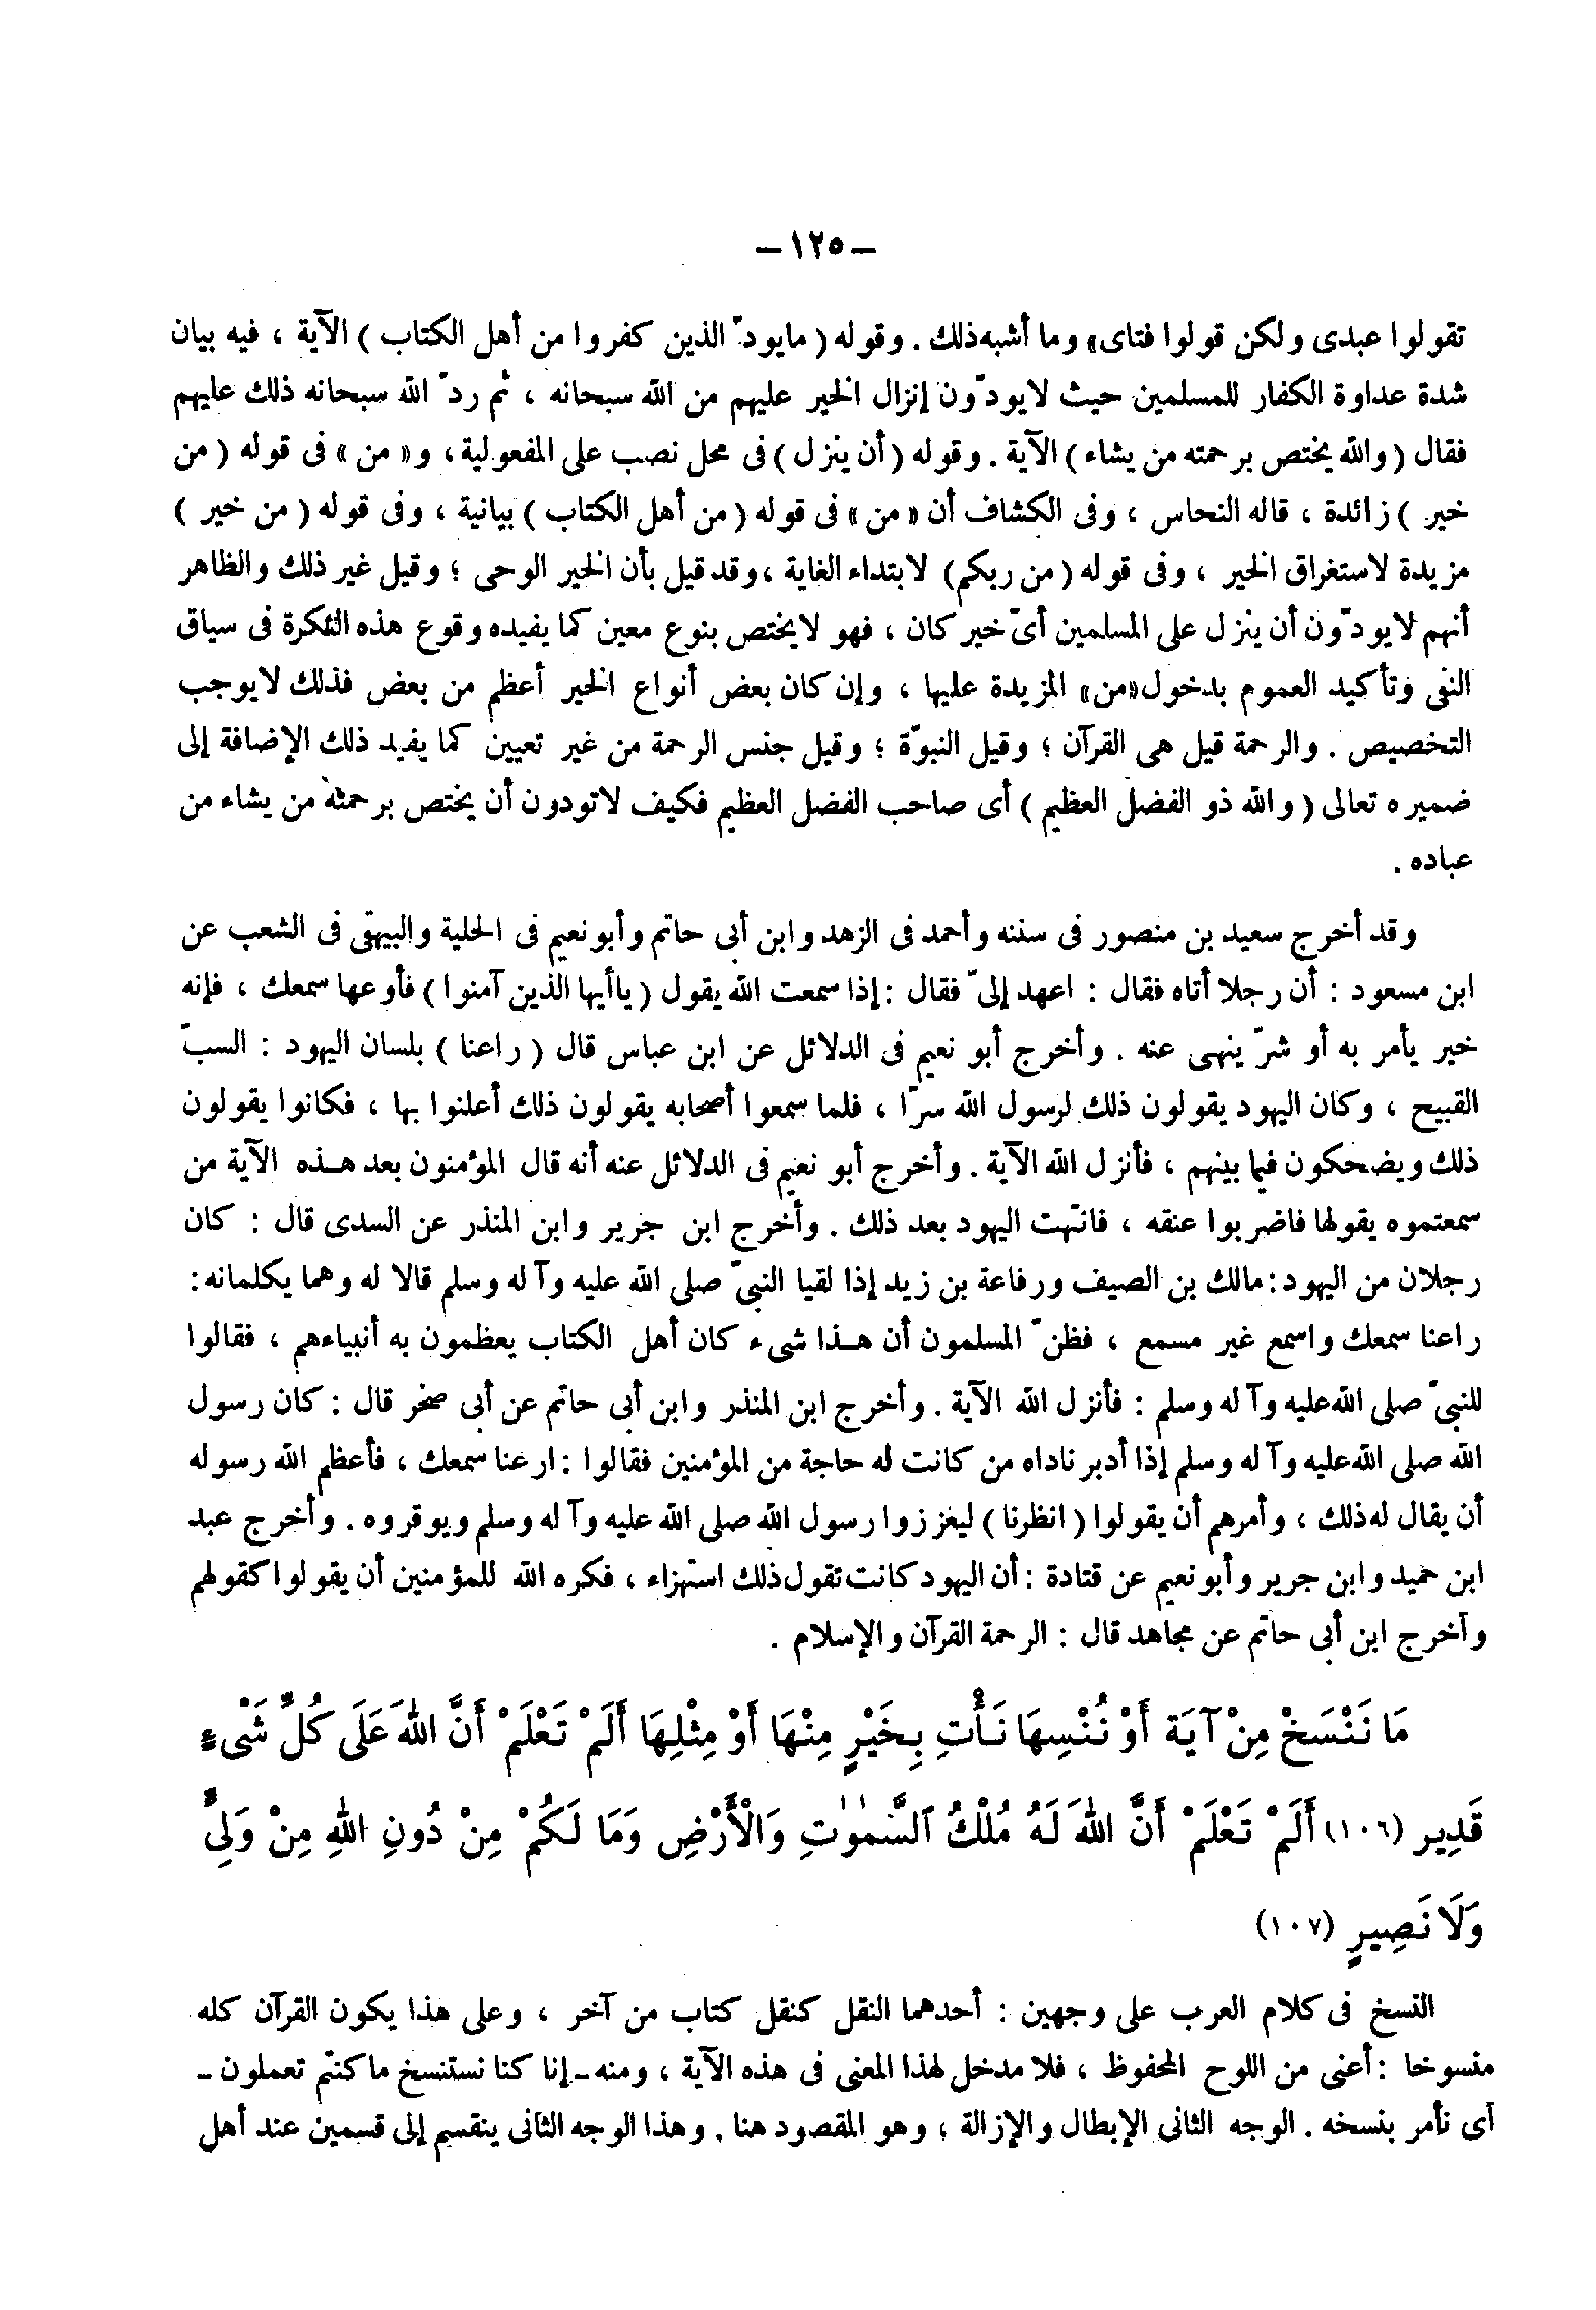 – ١٢٥ –
تقولوا عبدى ولكن قولوا فتاى» وما أشبه ذلك . وقوله ( مايودّ الذين كفروا من أهل الكتاب ) الآية ، فيه بيان
شدة عداوة الكفار للمسلمين حيث لايودّون إنزال الخير عليهم من الله سبحانه ، ثم ردّ الله سبحانه ذلك عليهم
فقال ( والله يختص برحمته من يشاء ) الآية . وقوله ( أن ينزل ) فى محل نصب على المفعولية ، و « من » فى قوله ( من
خير ) زائدة ، قاله النحاس ، وفى الكشاف أن « من » فى قوله ( من أهل الكتاب ) بيانية ، وفى قوله ( من خير )
مزيدة لاستغراق الخير ، وفى قوله ( من ربكم ) لابتداء الغاية ، وقد قيل بأن الخير الوحى ؛ وقيل غير ذلك والظاهر
أنهم لايودّون أن ينزل على المسلمين أىّ خير كان ، فهو لايختص بنوع معين كما يفيده وقوع هذه النكرة فى سياق
النفى وتأكيد العموم بدخول «من» المزيدة عليها ، وإن كان بعض أنواع الخير أعظم من بعض فذلك لايوجب
التخصيص . والرحمة قيل هى القرآن ؛ وقيل النبوّة ؛ وقيل جنس الرحمة من غير تعيين كما يفيد ذلك الإضافة إلى
ضميره تعالى ( والله ذو الفضل العظيم ) أى صاحب الفضل العظيم فكيف لاتودون أن يختص برحمته من يشاء من
عباده .
وقد أخرج سعيد بن منصور فى سننه وأحمد فى الزهد وابن أبى حاتم وأبو نعيم فى الحلية والبيهقى فى الشعب عن
ابن مسعود : أن رجلا أتاه فقال : اعهد إلىّ فقال : إذا سمعت الله يقول ( ياأيها الذين آمنوا ) فأوعها سمعك ، فإنه
خير يأمر به أو شرّ ينهى عنه . وأخرج أبو نعيم فى الدلائل عن ابن عباس قال ( راعنا ) بلسان اليهود : السبّ
القبيح ، وكان اليهود يقولون ذلك لرسول الله سرّا ، فلما سمعوا أصحابه يقولون ذلك أعلنوا بها ، فكانوا يقولون
ذلك ويضحكون فيما بينهم ، فأنزل الله الآية . وأخرج أبو نعيم فى الدلائل عنه أنه قال المؤمنون بعد هـذه الآية من
سمعتموه يقولها فاضربوا عنقه ، فانتهت اليهود بعد ذلك . وأخرج ابن جرير وابن المنذر عن السدى قال : كان
رجلان من اليهود : مالك بن الصيف ورفاعة بن زيد إذا لقيا النبىّ صلى الله عليه وآله وسلم قالا له وهما يكلمانه :
راعنا سمعك واسمع غير مسمع ، فظنّ المسلمون أن هـذا شىء كان أهل الكتاب يعظمون به أنبياءهم ، فقالوا
للنبىّ صلى الله عليه وآله وسلم : فأنزل الله الآية . وأخرج ابن المنذر وابن أبى حاتم عن أبى صخر قال : كان رسول
الله صلى الله عليه وآله وسلم إذا أدبر ناداه من كانت له حاجة من المؤمنين فقالوا : ارعنا سمعك ، فأعظم الله رسوله
أن يقال له ذلك ، وأمرهم أن يقولوا ( انظرنا ) ليعززوا رسول الله صلى الله عليه وآله وسلم ويوقروه . وأخرج عبد
ابن حميد وابن جرير وأبو نعيم عن قتادة : أن اليهود كانت تقول ذلك استهزاء ، فكره الله للمؤمنين أن يقولوا كقولهم
وأخرج ابن أبى حاتم عن مجاهد قال : الرحمة القرآن والإسلام .
مَا نَنْسَخْ مِنْ آيَة أَوْ نُنْسِهَا نَـأْتِ بِخَيْرٍ مِنْهَا أَوْ مِثْلِهَا أَلَمْ تَعْلَمْ أَنَّ اللهَ عَلَى كُلِّ شَىْءٍ
قَدِير (١٠٦) أَلَمْ تَعْلَمْ أَنَّ اللهَ لَهُ مُلْكُ ٱلسَّمٰوٰتِ وَالْأَرْضِ وَمَا لَكُمْ مِنْ دُونِ اللهِ مِنْ وَلِىٍّ
وَلَا نَصِيرٍ (١٠٧)
النسخ فى كلام العرب على وجهين : أحدهما النقل كنقل كتاب من آخر ، وعلى هذا يكون القرآن كله
منسوخا : أعنى من اللوح المحفوظ ، فلا مدخل لهذا المعنى فى هذه الآية ، ومنه ـ إنا كنا نستنسخ ما كنتم تعملون ـ
أى نأمر بنسخه . الوجه الثانى الإبطال والإزالة ، وهو المقصود هنا . وهذا الوجه الثانى ينقسم إلى قسمين عند أهل